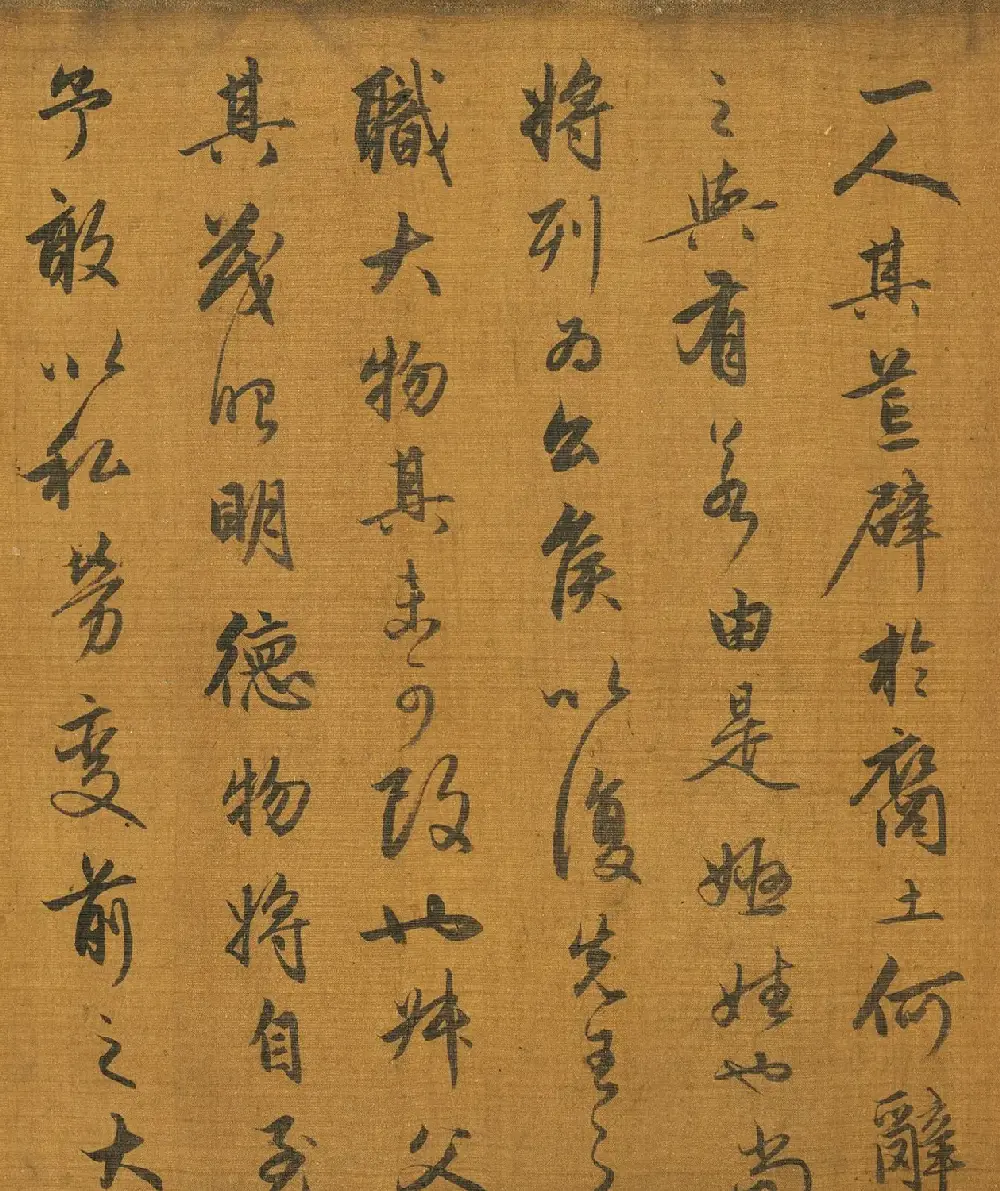 一人其辟於裔土何辭
之與有若由是姬姓也尚
將列為公侯以復先王之
職大物其未可改也叔父
其茂昭明德物將自至
予敢以私勞變前之大